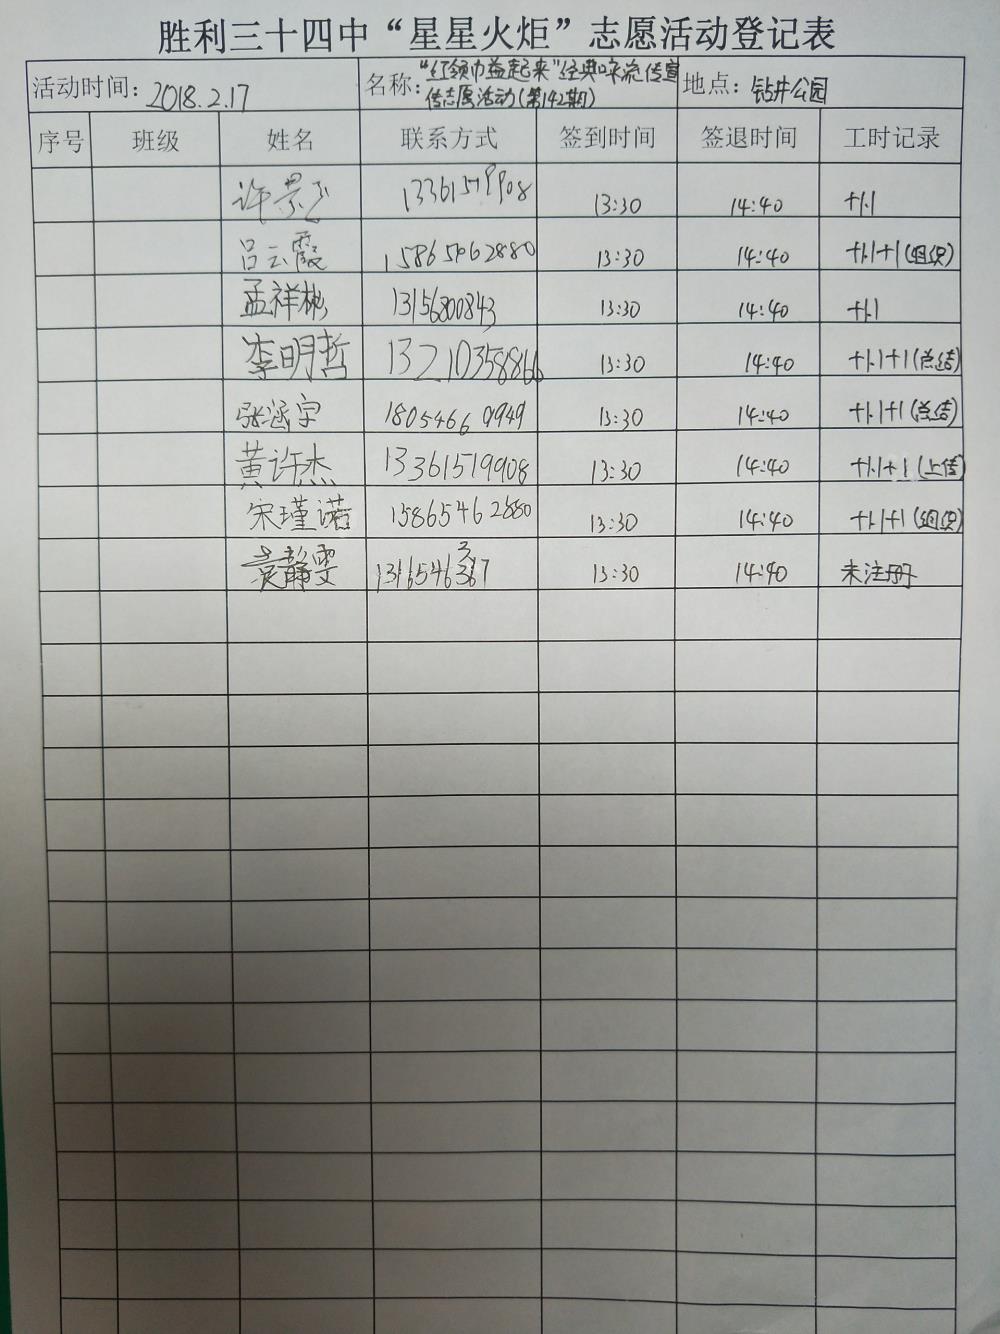 胜利三十四中“星星火炬”志愿活动登记表
活动时间：2018.2.17 名称：“红领巾益起来”经典咏流传宣传志愿活动（第142期） 地点：钻井公园
序号 班级 姓名 联系方式 签到时间 签退时间 工时记录
许景 13361519908 13:30 14:40 +1.1
吕云霞 15865462880 13:30 14:40 +1.1+1(组织)
孟祥彬 13156800843 13:30 14:40 +1.1
李明哲 13210358866 13:30 14:40 +1.1+1(总结)
张涵宇 18054669949 13:30 14:40 +1.1+1(总结)
黄许杰 13361519908 13:30 14:40 +1.1+1(上传)
宋瑾诺 15865462880 13:30 14:40 +1.1+1(组织)
静雯 13:30 14:40 未注册